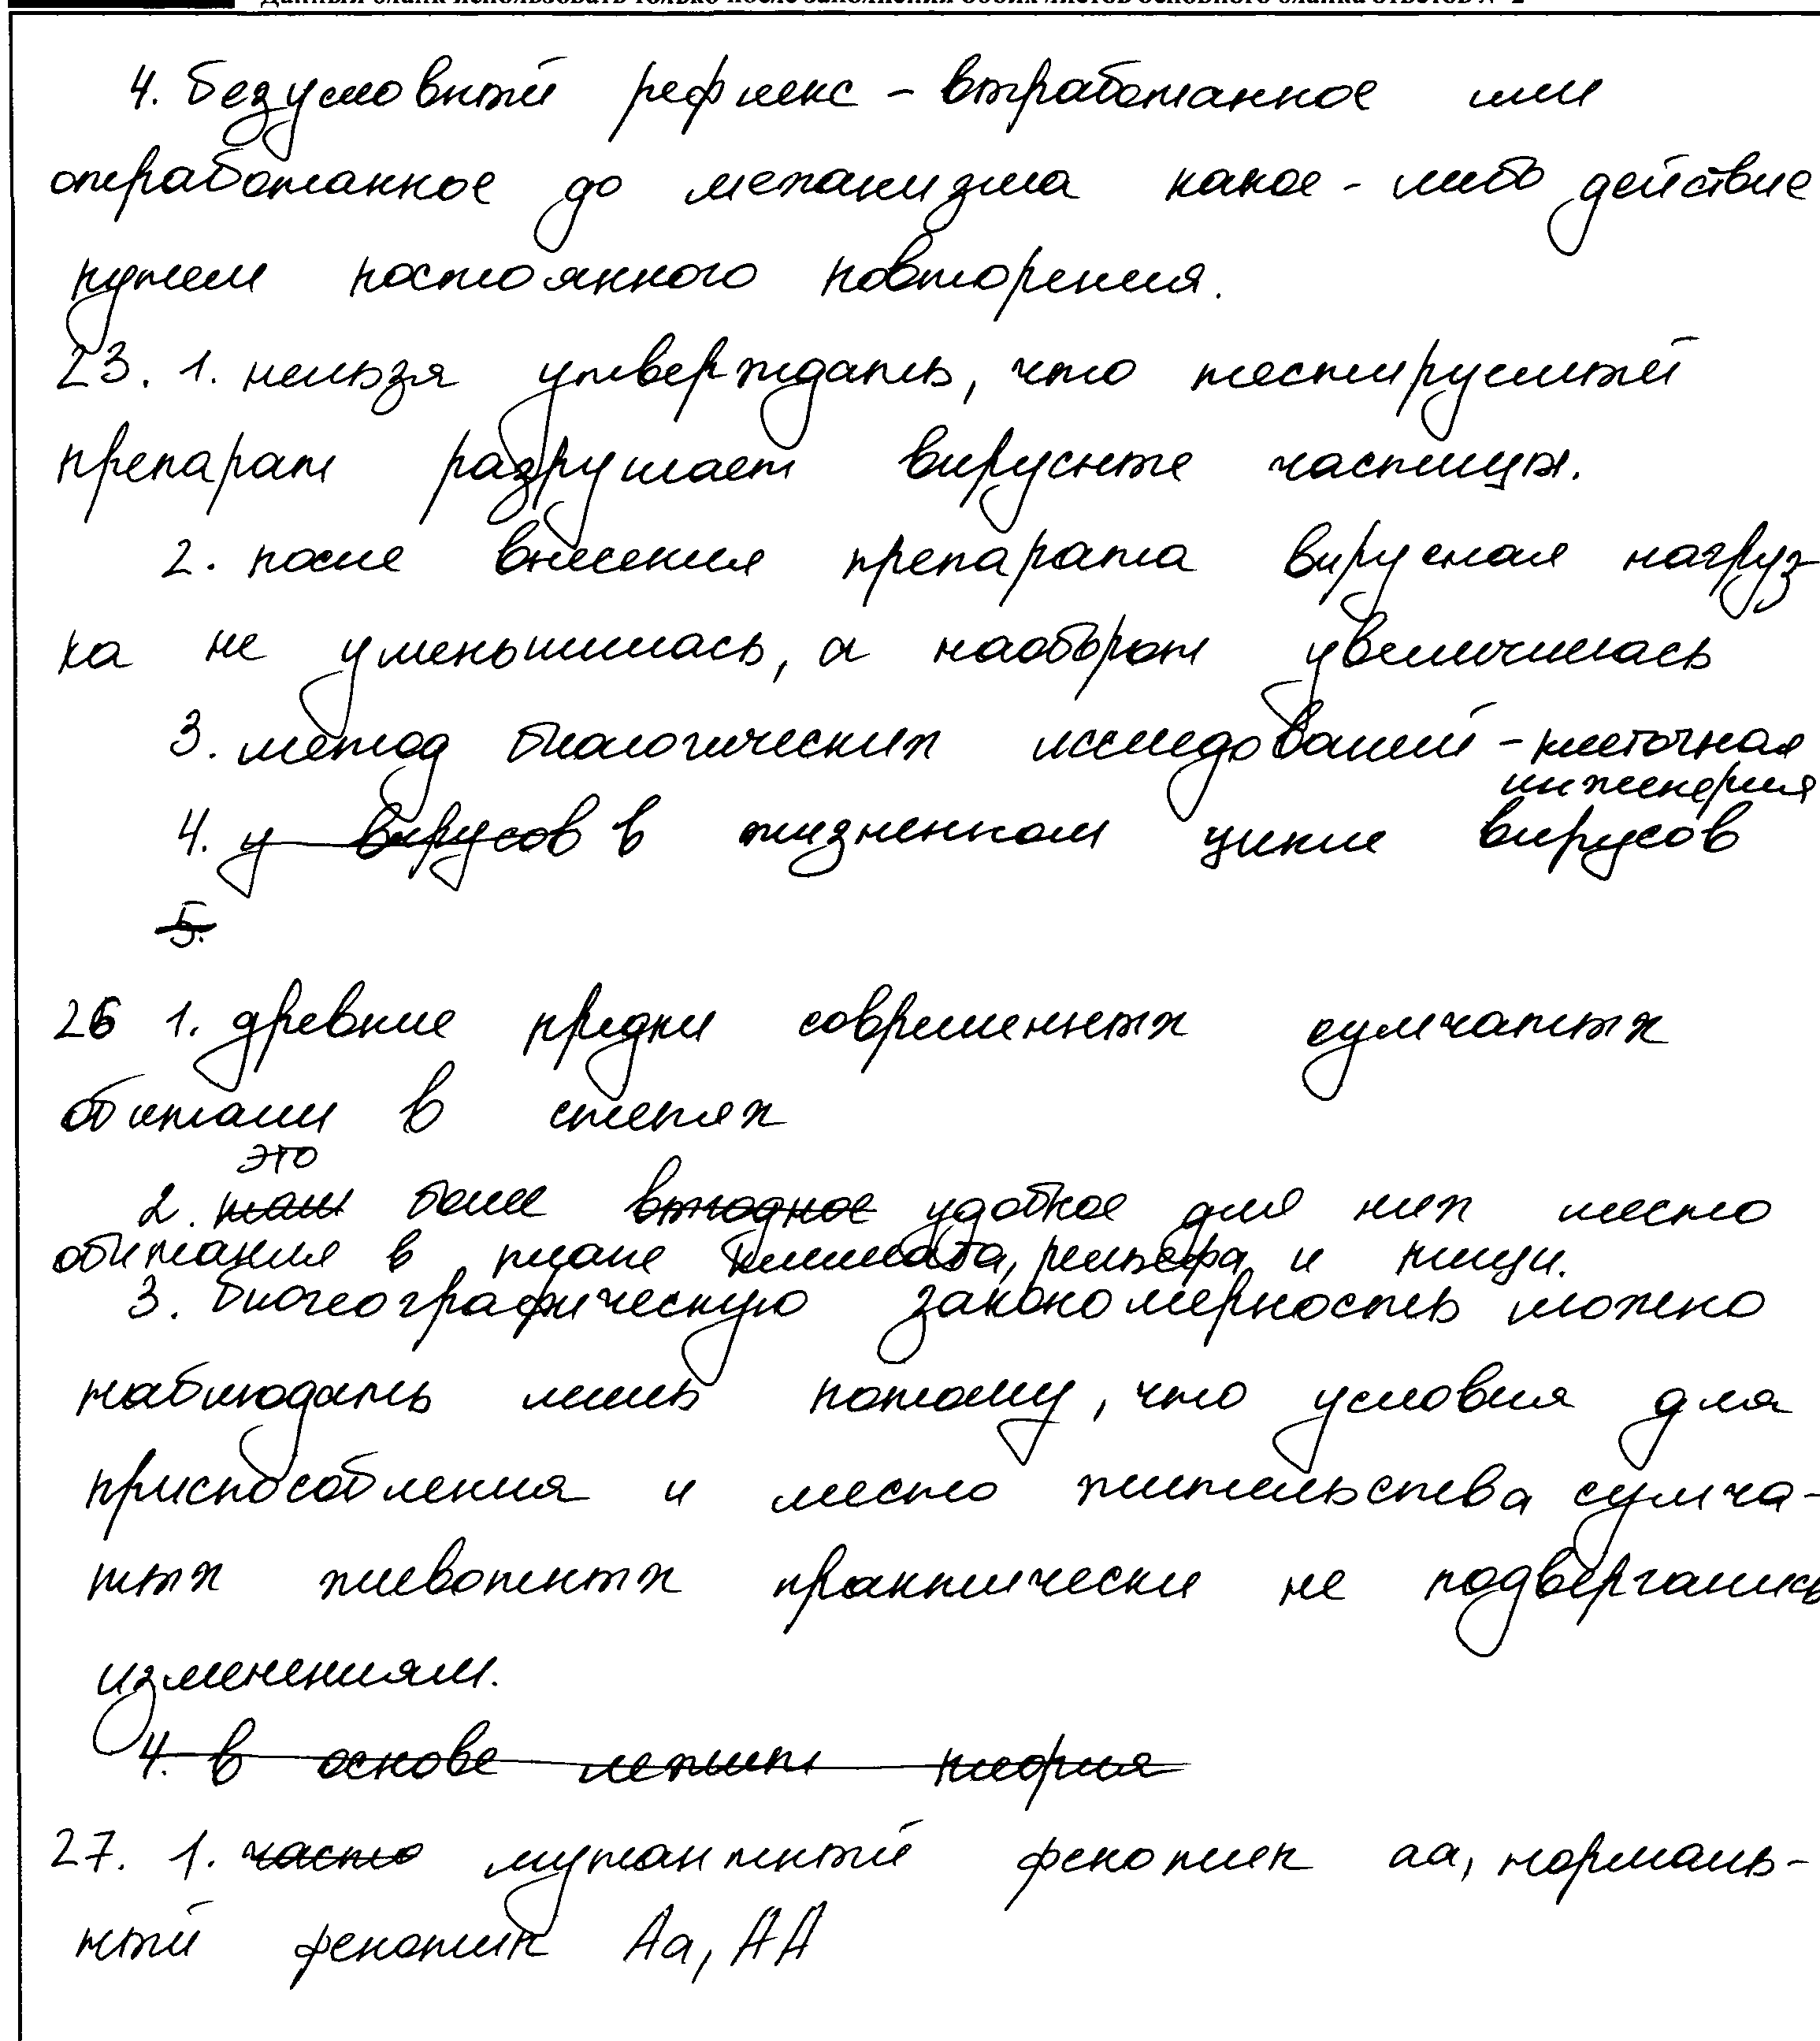 Данный бланк использовать только после заполнения обоих листов основного бланка ответов № 2
4. безусловный рефлекс - выработанное или
отработанное до механизма какое-либо действие
путем постоянного повторения.
23. 1. нельзя утверждать, что тестируемый
препарат разрушает вирусные частицы.
2. после внесения препарата вирусная нагруз
ка не уменьшилась, а наоборот увеличилась
3. метод биологических исследований - клеточная
инженерия
4. у вирусов в жизненном цикле вирусов
5.
26 1. древние предки современных сумчатых
обитали в степях
это
2. там более выгодное удобное для них место
обитания в плане климата, рельефа и пищи.
3. биогеографическую закономерность можно
наблюдать лишь потому, что условия для
приспособления и место жительства сумча-
тых животных практически не подвергались
изменениям.
4. в основе лежит теория
27. 1. часто мутантный фенотип аа, нормаль-
ный фенотип Аа, АА